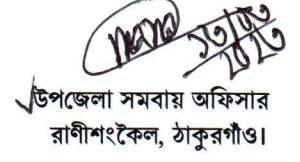 উপজেলা সমবায় অফিসার
রাণীশংকৈল, ঠাকুরগাঁও।